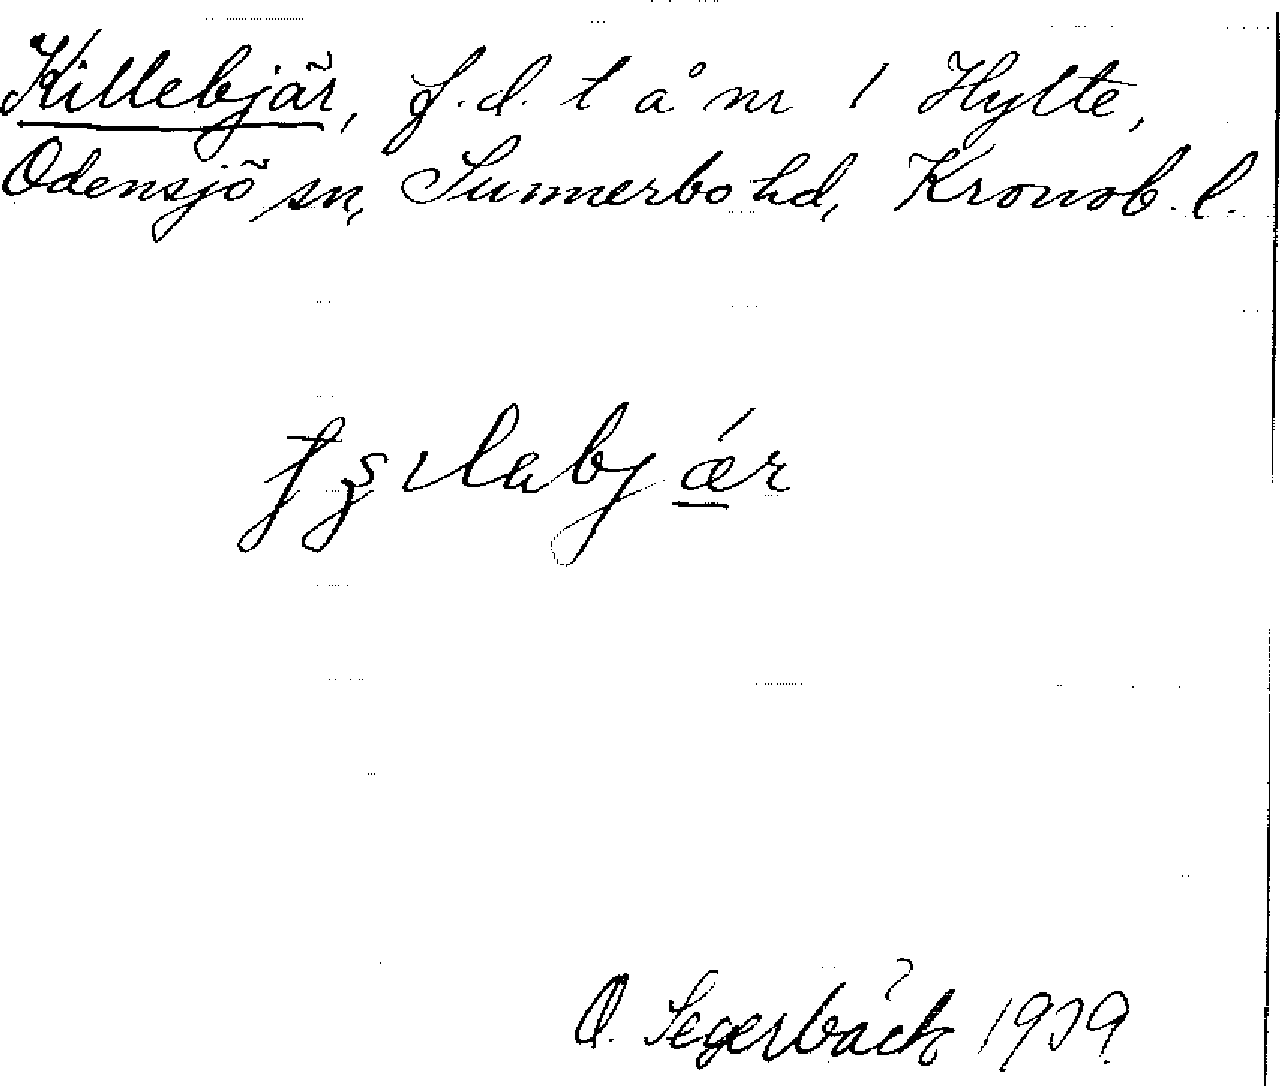 Killebjär, f.d. t å nr 1 Hylte,
Odensjö sn, Sunnerbo hd, Kronob. l.
O. Segerbäck 1939.